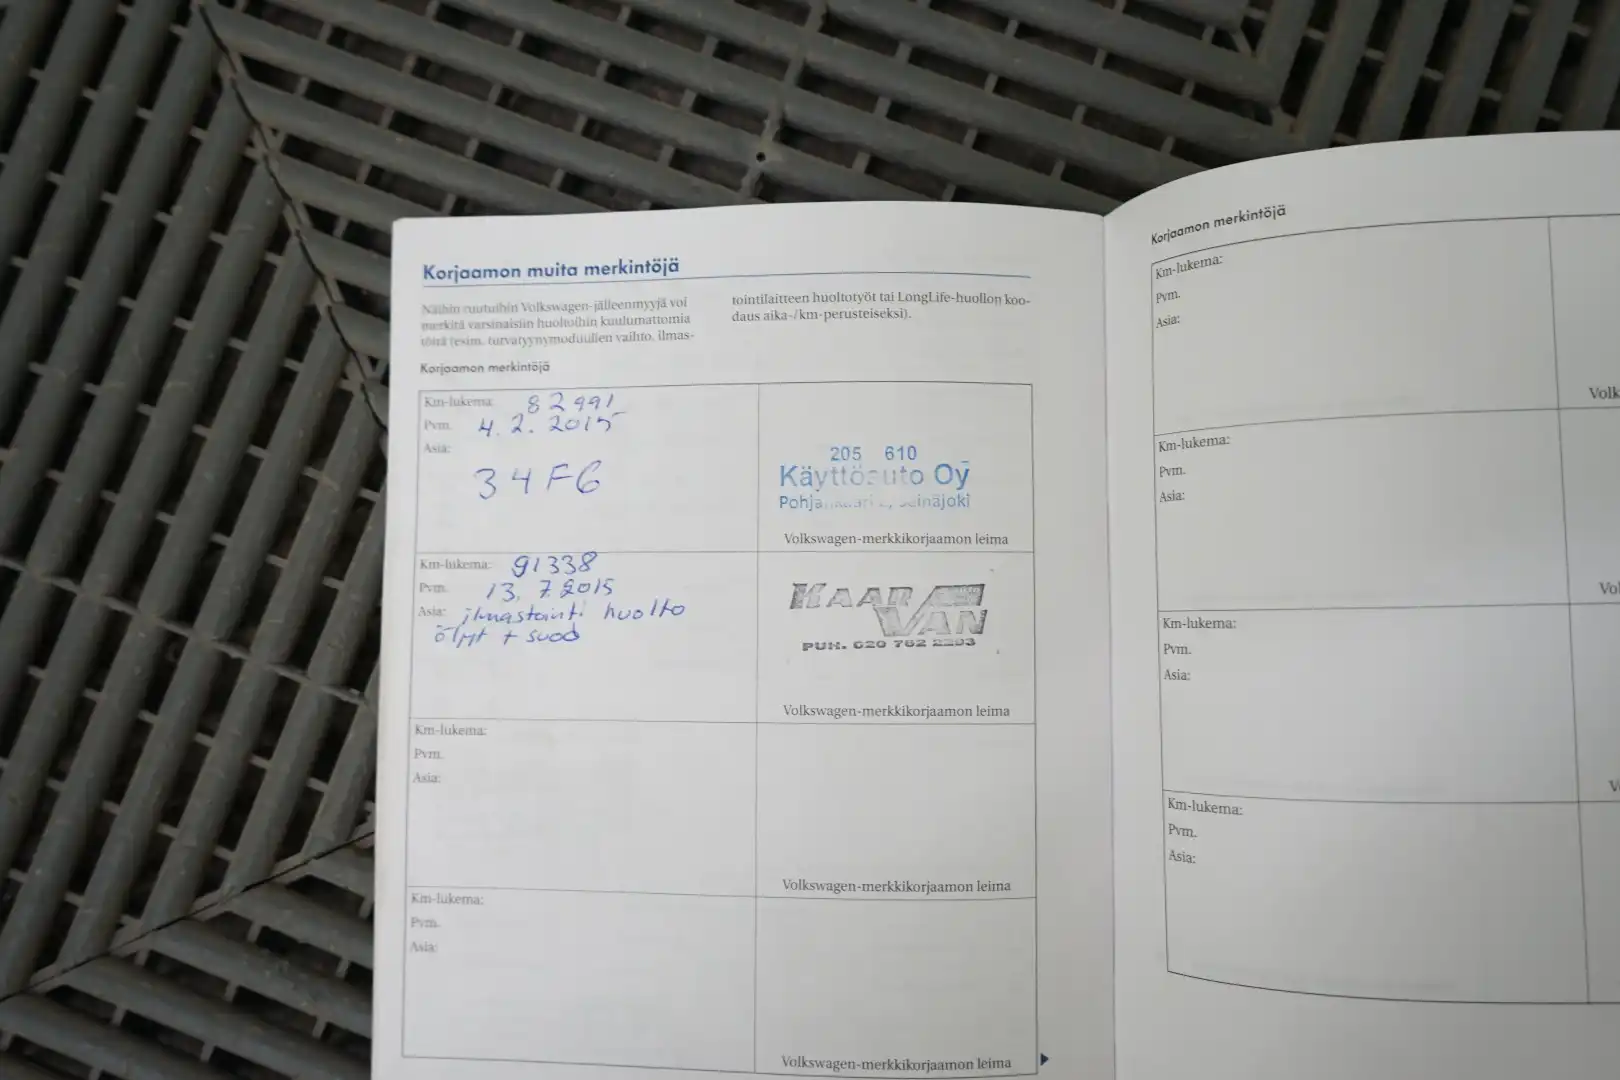 Korjaamon muita merkintöjä
Näihin ruutuihin Volkswagen-jälleenmyyjä voi
merkitä varsinaisiin huoltoihin kuulumattomia
töitä (esim. turvatyynymoduulien vaihto, ilmas-
tointilaitteen huoltotyöt tai LongLife-huollon koo-
daus aika-/km-perusteiseksi).
Korjaamon merkintöjä
Km-lukema: 82991
Pvm. 4.2.2015
Asia:
34F6
205 610
Käyttöauto Oy
Seinäjoki
Volkswagen-merkkikorjaamon leima
Km-lukema: 91338
Pvm. 13.7.2015
Asia: ilmastointi huolto
öljyt + suod
KAARA
VAN
PUH. 020 762 2293
Volkswagen-merkkikorjaamon leima
Km-lukema:
Pvm.
Asia:
Volkswagen-merkkikorjaamon leima
Km-lukema:
Pvm.
Asia:
Volkswagen-merkkikorjaamon leima
Korjaamon merkintöjä
Km-lukema:
Pvm.
Asia:
Volk
Km-lukema:
Pvm.
Asia:
Vo
Km-lukema:
Pvm.
Asia:
V
Km-lukema:
Pvm.
Asia: